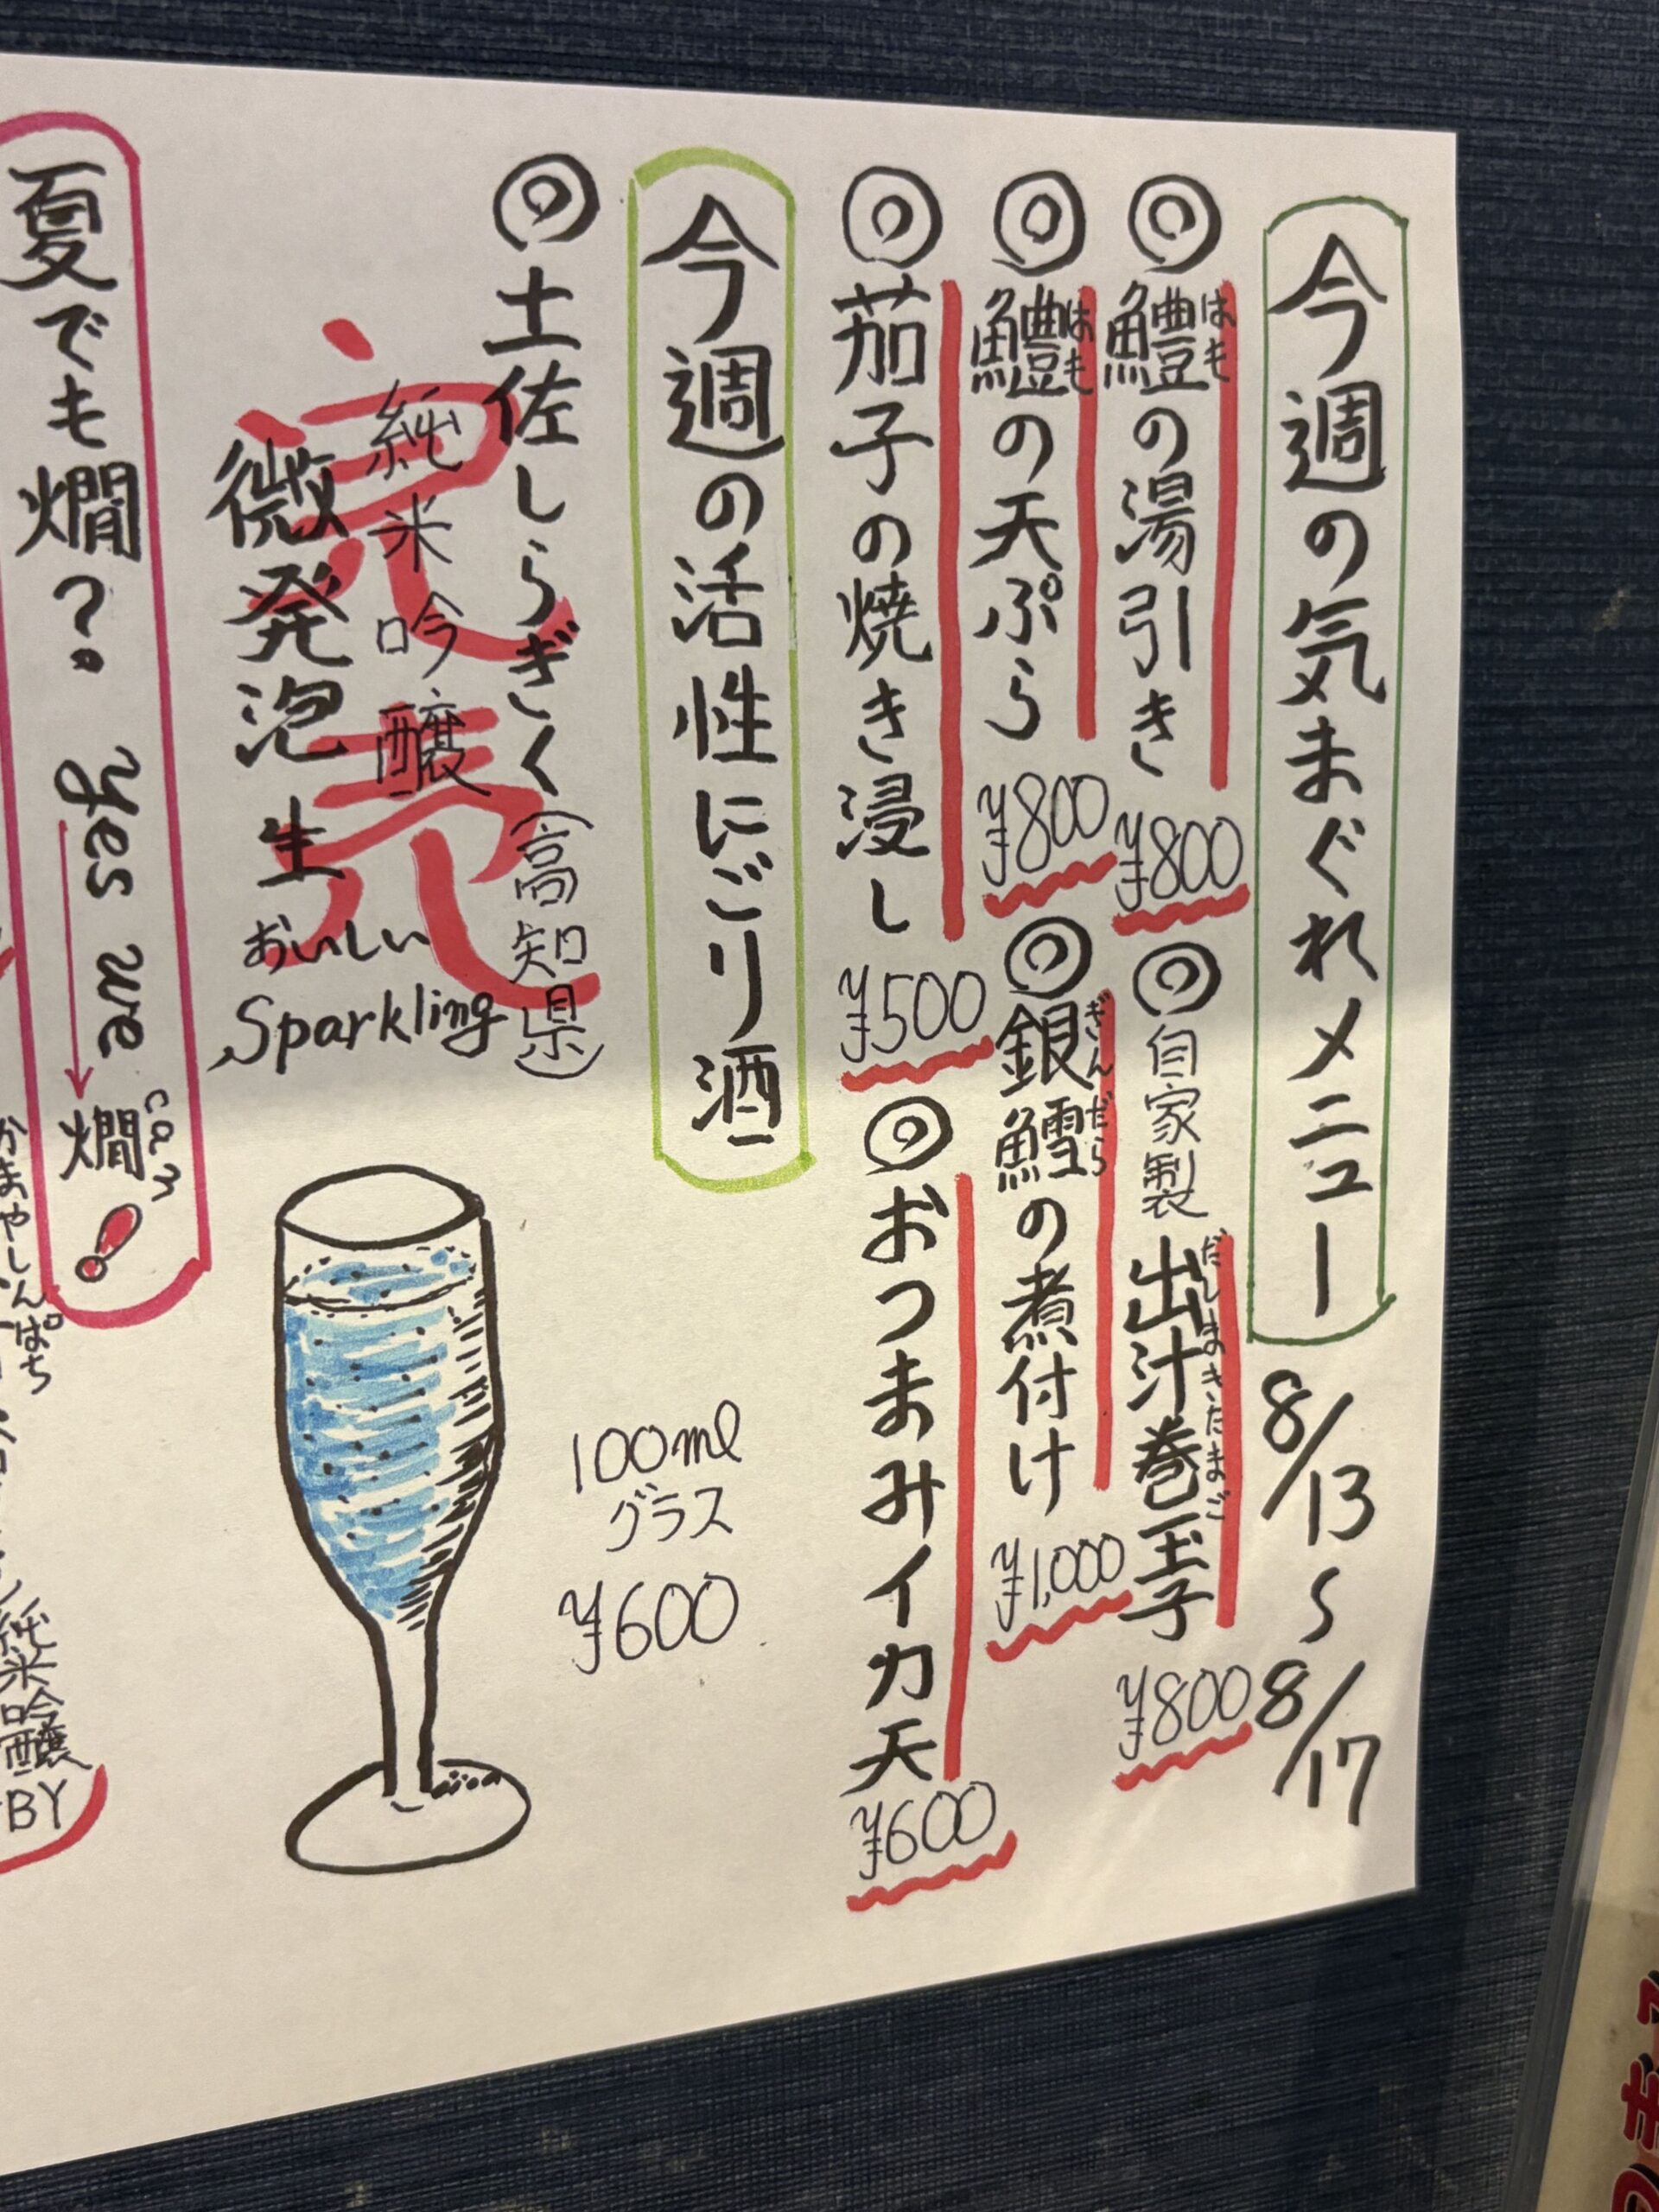 今週の気まぐれメニュー 8/13〜8/17
◎鱧の湯引き ¥800
はも
◎自家製 出汁巻玉子 ¥800
だしまきたまご
◎鱧の天ぷら ¥800
はも
◎銀鱈の煮付け ¥1,000
ぎんだら
◎茄子の焼き浸し ¥500
◎おつまみイカ天 ¥600
今週の活性にごり酒
◎土佐しらぎく(高知県)
純米吟醸
微発泡 生
おいしい
Sparkling
完売
100ml
グラス
¥600
夏でも燗? Yes we → 燗!
can
かまやしんぱち
純米吟醸
BY